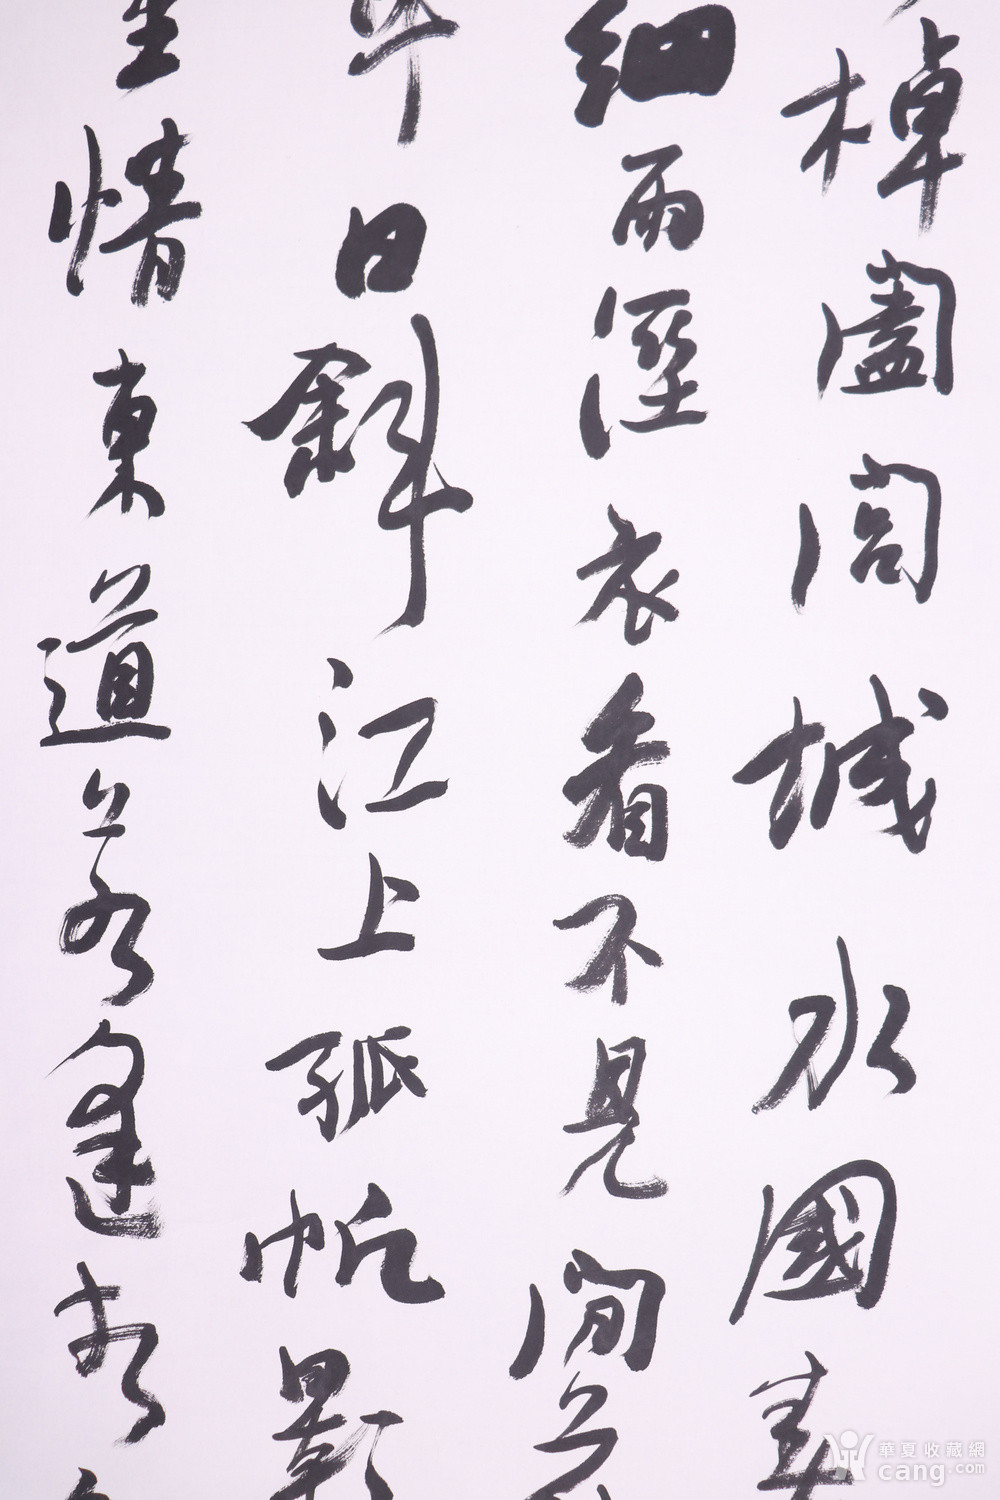 棹闔閭城水國春
細雨溼衣看不見間
日斜江上孤帆影
里情東道若逢相
華夏收藏網
cang.com